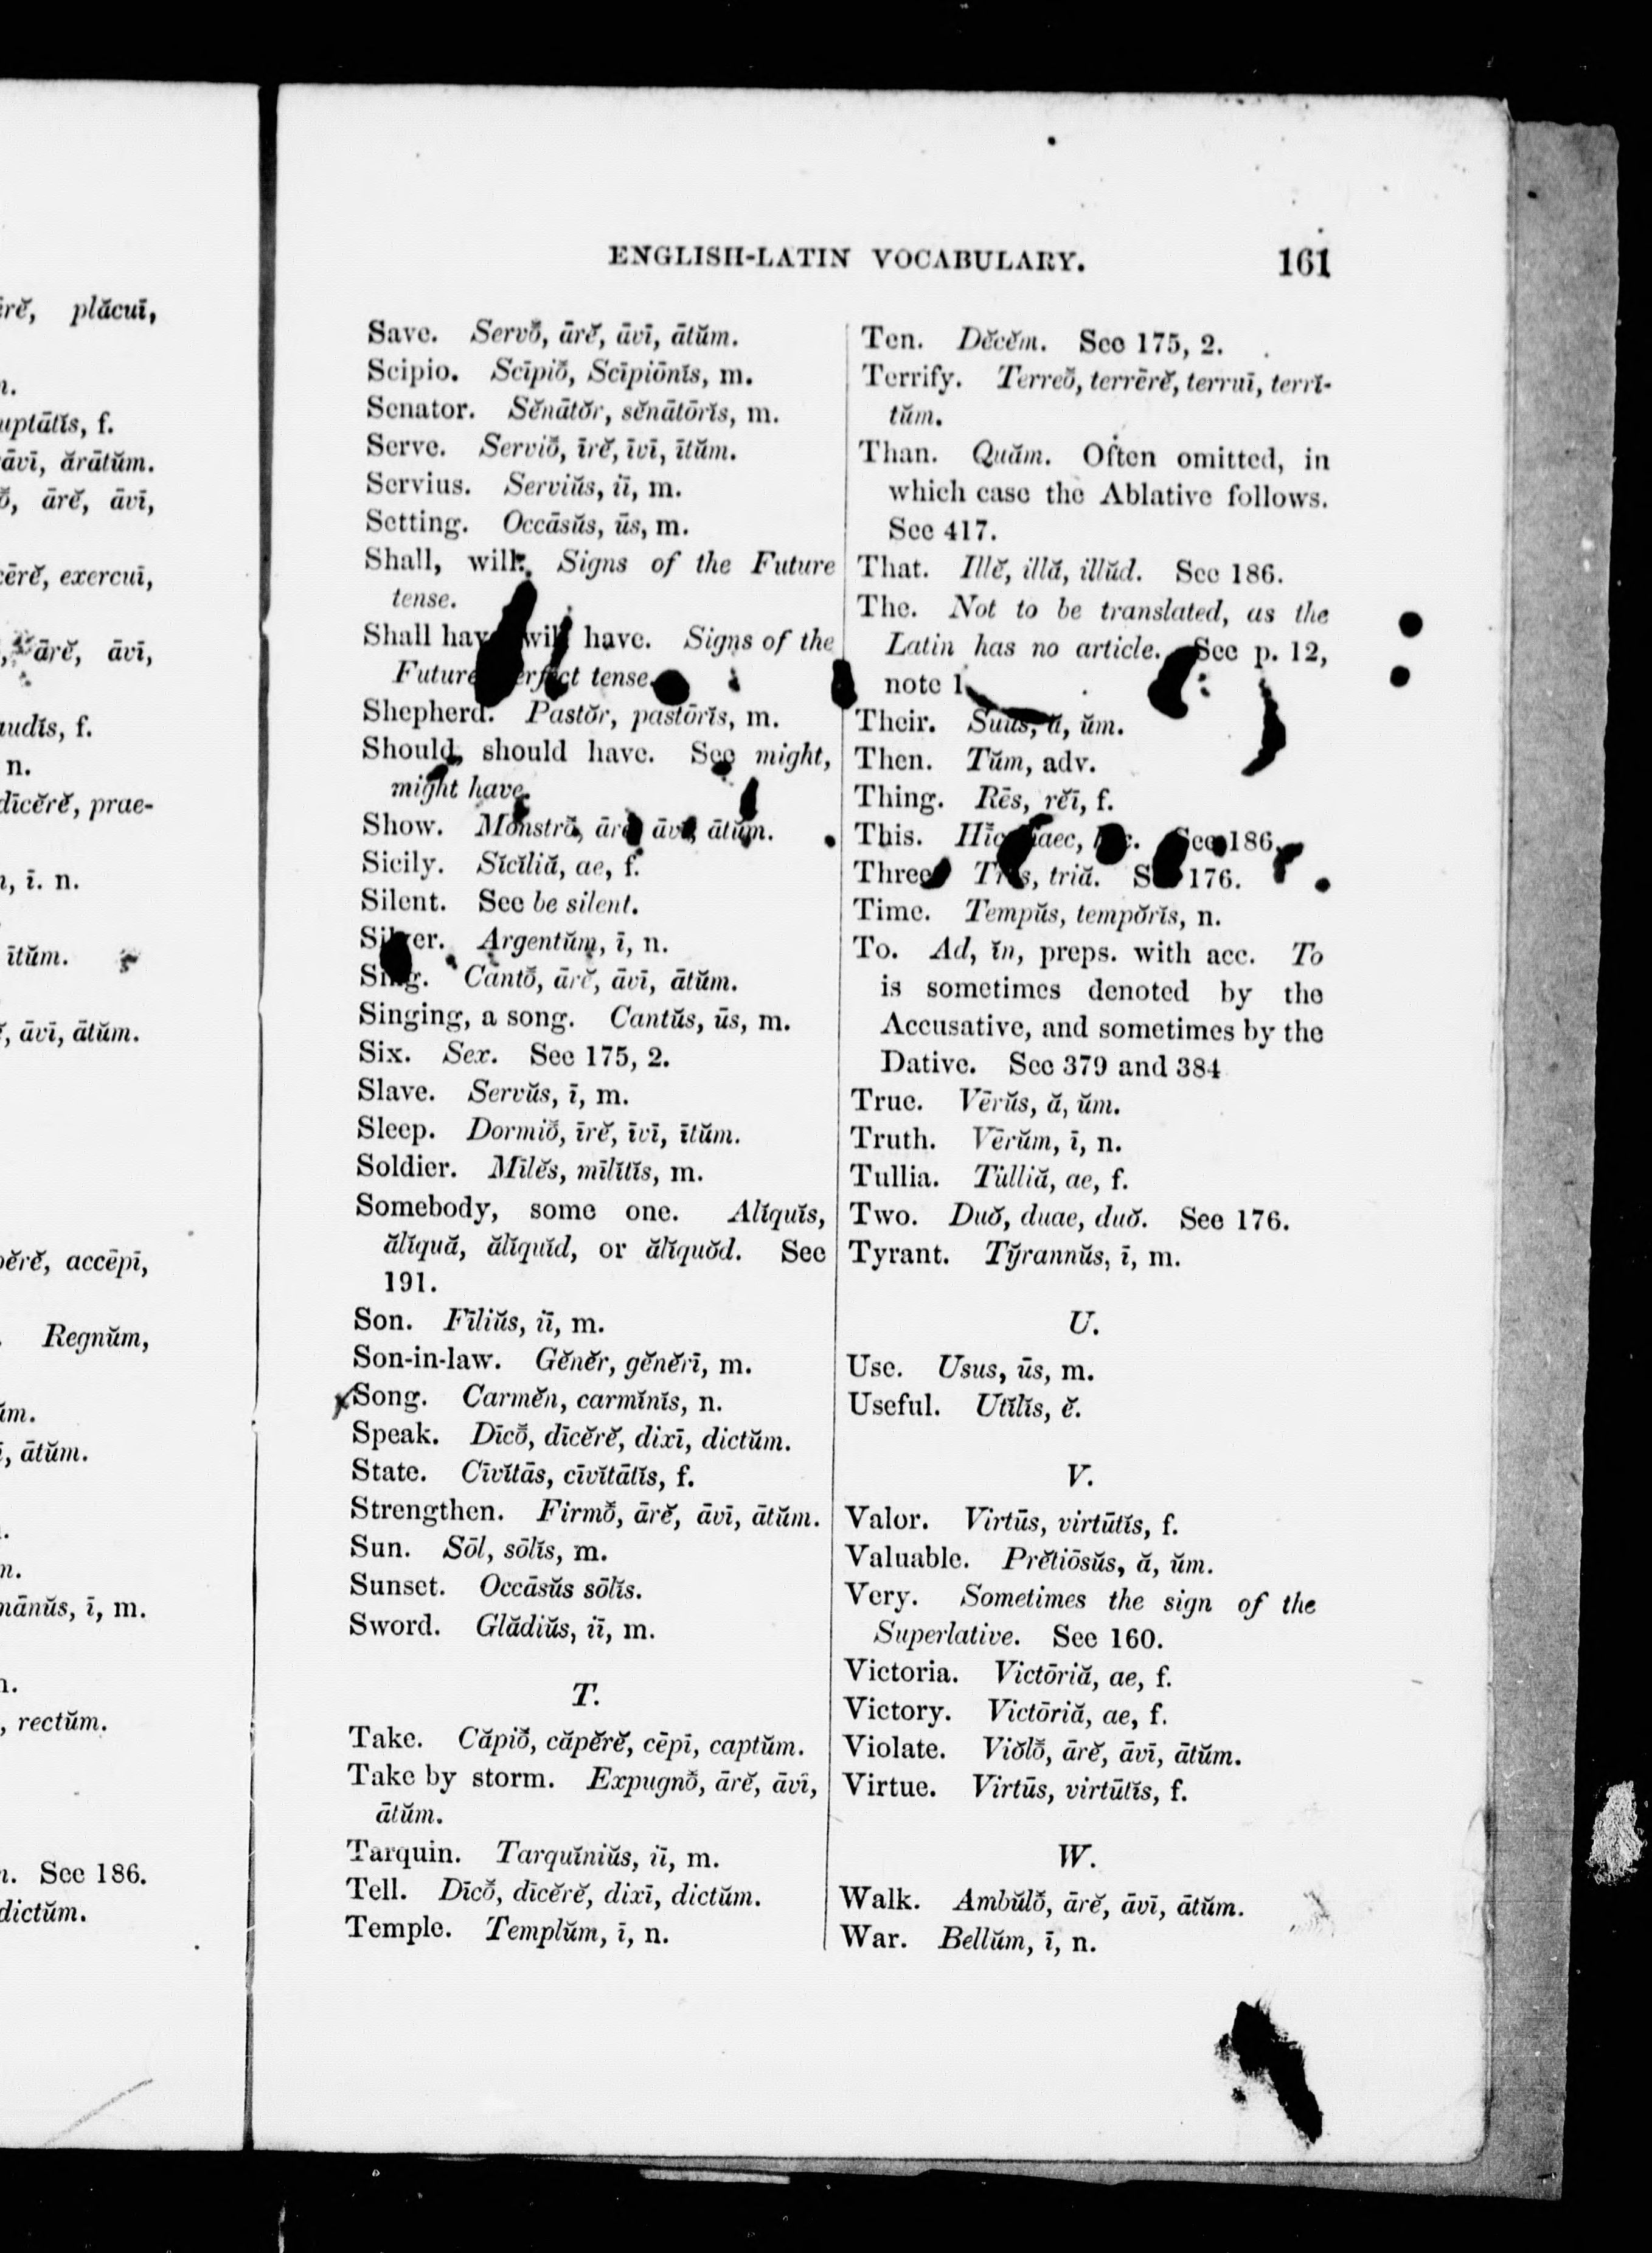 ĕrĕ, plăcuī,
n.
uptātĭs, f.
āvī, ărātŭm.
āvī,
ārĕ,
cērĕ, exercuī,
ārĕ, āvī,
audĭs, f.
n.
dīcĕrĕ, prae-
ī. n.
ītŭm.
āvī, ātŭm.
pĕrĕ, accēpī,
Regnŭm,
ŭm.
ātŭm.
n.
mānŭs, ī, m.
rectŭm.
See 186.
dictŭm.
ENGLISH-LATIN VOCABULARY. 161
Save. Servŏ, ārĕ, āvī, ātŭm.
Scipio. Scīpiŏ, Scīpiōnĭs, m.
Senator. Sĕnātŏr, sĕnātōrĭs, m.
Serve. Serviŏ, īrĕ, īvī, ītŭm.
Servius. Serviŭs, iī, m.
Setting. Occāsŭs, ūs, m.
Shall, will. Signs of the Future
tense.
Shall have, will have. Signs of the
Future Perfect tense.
Shepherd. Pastŏr, pastōrĭs, m.
Should, should have. See might,
might have.
Show. Monstrŏ, ārĕ, āvī, ātŭm.
Sicily. Sĭcĭliă, ae, f.
Silent. See be silent.
Silver. Argentŭm, ī, n.
Sing. Cantŏ, ārĕ, āvī, ātŭm.
Singing, a song. Cantŭs, ūs, m.
Six. Sex. See 175, 2.
Slave. Servŭs, ī, m.
Sleep. Dormiŏ, īrĕ, īvī, ītŭm.
Soldier. Mīlĕs, mīlĭtĭs, m.
Somebody, some one. Alĭquĭs,
ălĭquă, ălĭquĭd, or ălĭquŏd. See
191.
Son. Fīliŭs, iī, m.
Son-in-law. Gĕnĕr, gĕnĕrī, m.
Song. Carmĕn, carmĭnĭs, n.
Speak. Dīcŏ, dīcĕrĕ, dixī, dictŭm.
State. Cīvĭtās, cīvĭtātĭs, f.
Strengthen. Firmŏ, ārĕ, āvī, ātŭm.
Sun. Sōl, sōlĭs, m.
Sunset. Occāsŭs sōlĭs.
Sword. Glădiŭs, iī, m.
T.
Take. Căpiŏ, căpĕrĕ, cēpī, captŭm.
Take by storm. Expugnŏ, ārĕ, āvī,
ātŭm.
Tarquin. Tarquĭniŭs, iī, m.
Tell. Dīcŏ, dīcĕrĕ, dixī, dictŭm.
Temple. Templŭm, ī, n.
Ten. Dĕcĕm. See 175, 2.
Terrify. Terreŏ, terrērĕ, terruī, terrĭ-
tŭm.
Than. Quăm. Often omitted, in
which case the Ablative follows.
See 417.
That. Illĕ, illă, illŭd. See 186.
The. Not to be translated, as the
Latin has no article. See p. 12,
note 1.
Their. Suŭs, ă, ŭm.
Then. Tŭm, adv.
Thing. Rēs, rĕī, f.
This. Hīc, haec, hōc. See 186.
Three. Trēs, triă. See 176.
Time. Tempŭs, tempŏrĭs, n.
To. Ad, ĭn, preps. with acc. To
is sometimes denoted by the
Accusative, and sometimes by the
Dative. See 379 and 384
True. Vērŭs, ă, ŭm.
Truth. Vērŭm, ī, n.
Tullia. Tulliă, ae, f.
Two. Duŏ, duae, duŏ. See 176.
Tyrant. Tўrannŭs, ī, m.
U.
Use. Usus, ūs, m.
Useful. Utĭlĭs, ĕ.
V.
Valor. Virtūs, virtūtĭs, f.
Valuable. Prĕtiōsŭs, ă, ŭm.
Very. Sometimes the sign of the
Superlative. See 160.
Victoria. Victōriă, ae, f.
Victory. Victōriă, ae, f.
Violate. Viŏlŏ, ārĕ, āvī, ātŭm.
Virtue. Virtūs, virtūtĭs, f.
W.
Walk. Ambŭlŏ, ārĕ, āvī, ātŭm.
War. Bellŭm, ī, n.